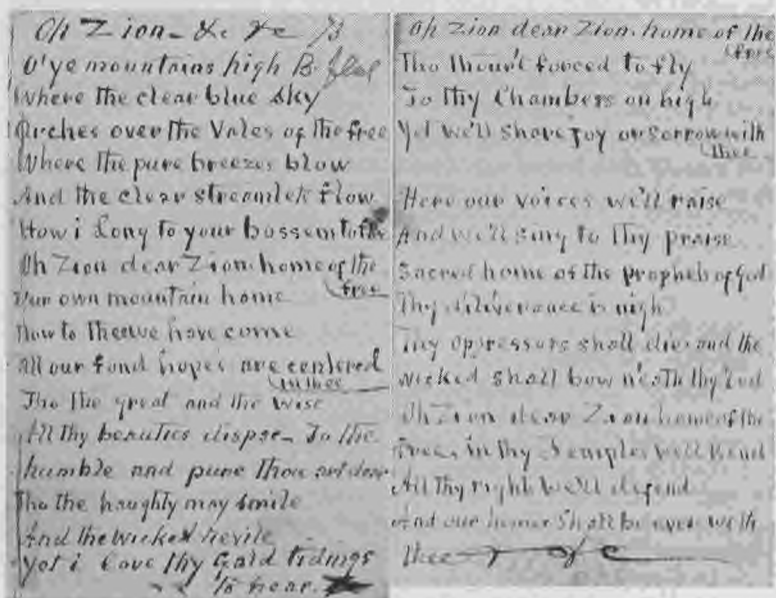 Oh Zion - &c &c /3
O'ye mountains high B. flat
Where the clear blue sky
Arches over the Vales of the free
Where the pure breezes blow
And the clear streamlets flow
How i Long to your bossem to flee
Oh Zion dear Zion home of the
free
Our own mountain home
Now to thee we have come
All our fond hopes are centered
in thee
Tho the great and the wise
All thy beauties dispse - To the
humble and pure thou art dear
Tho the haughty may smile
And the wicked revile
Yet i love thy Gald tidings
to hear.
Oh Zion dear Zion home of the
free
Tho thou't forced to fly
To thy Chambers on high
Yet we'll share joy or sorrow with
thee
Here our voices we'll raise
And we'll sing to Thy praise
Sacred home of the prophets of God
Thy deliverance is nigh
Thy oppressors shall die and the
wicked shall bow n'eath thy rod
Oh Zion dear Zion home of the
free, in thy Temples we'll bend
All thy rights we'll defend
And our home shall be ever with
thee